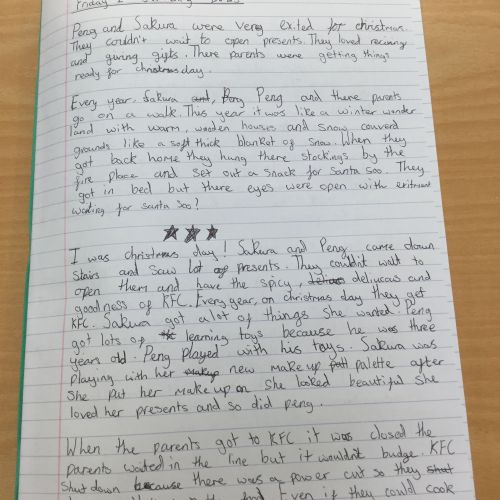 Friday 2
Peng and Sakura were very exited for christmas.
They couldn't wait to open presents. They loved reciving
and giving gifts. There parents were getting things
ready for christmas day.
Every year, Sakura and, Peng Peng and there parents
go on a walk. This year it was like a winter wonder
land with warm, wooden houses and snow coverd
grounds like a soft thick blanket of snow. When they
got back home they hung there stockings by the
fire place and set out a snack for santa soo. They
got in bed but there eyes were open with exitment
waiting for santa soo!
I was christmas day! Sakura and Peng came down
stairs and saw lot of presents. They couldn't wait to
open them and have the spicy, deliycous and
goodness of KFC. Every year, on christmas day they get
KFC. Sakura got alot of things she wanted. Peng
got lots of learning toys because he was three
years old. Peng played with his toys. Sakura was
playing with her makup new make up pall palette after
she put her make up on she looked beautiful she
loved her presents and so did peng.
When the parents got to KFC it was closed the
parents waited in the line but it wouldn't budge. KFC
shut down because there was a power cut so they shut
Even if they could cook